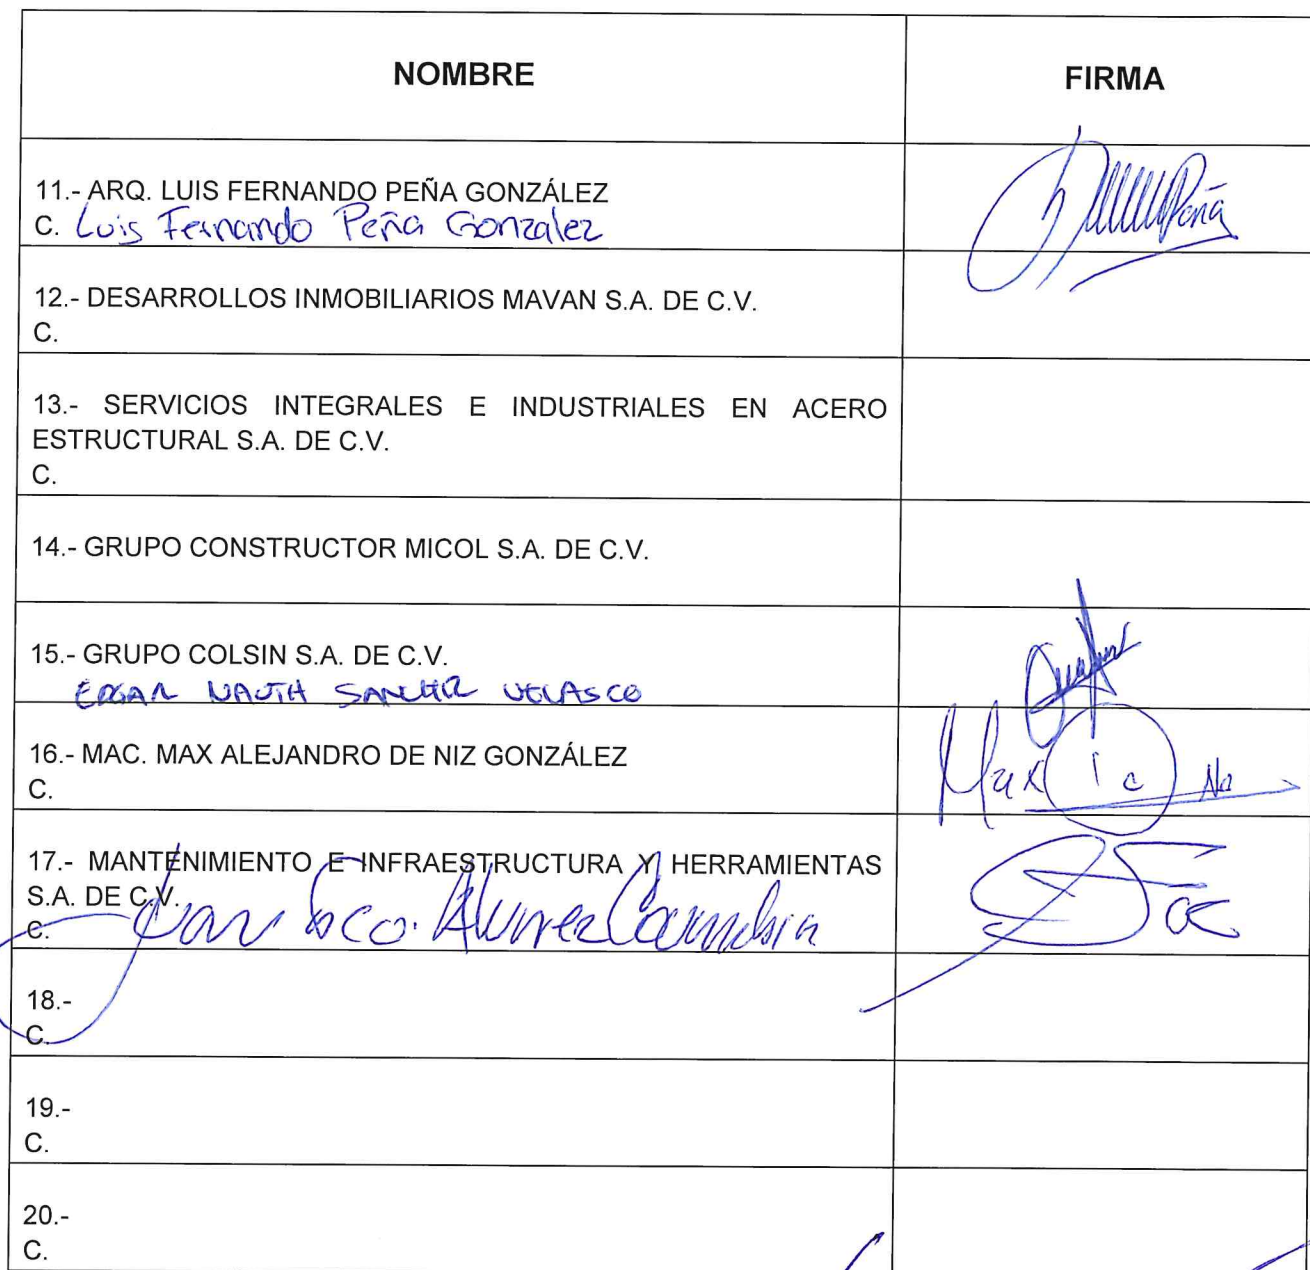 NOMBRE FIRMA
11.- ARQ. LUIS FERNANDO PEÑA GONZÁLEZ
C. Luis Fernando Peña Gonzalez Peña
12.- DESARROLLOS INMOBILIARIOS MAVAN S.A. DE C.V.
C.
13.- SERVICIOS INTEGRALES E INDUSTRIALES EN ACERO
ESTRUCTURAL S.A. DE C.V.
C.
14.- GRUPO CONSTRUCTOR MICOL S.A. DE C.V.
15.- GRUPO COLSIN S.A. DE C.V.
EDGAR VELASCO
16.- MAC. MAX ALEJANDRO DE NIZ GONZÁLEZ
C. Max
17.- MANTENIMIENTO E INFRAESTRUCTURA Y HERRAMIENTAS
S.A. DE C.V.
C. Fco.
18.-
C.
19.-
C.
20.-
C.